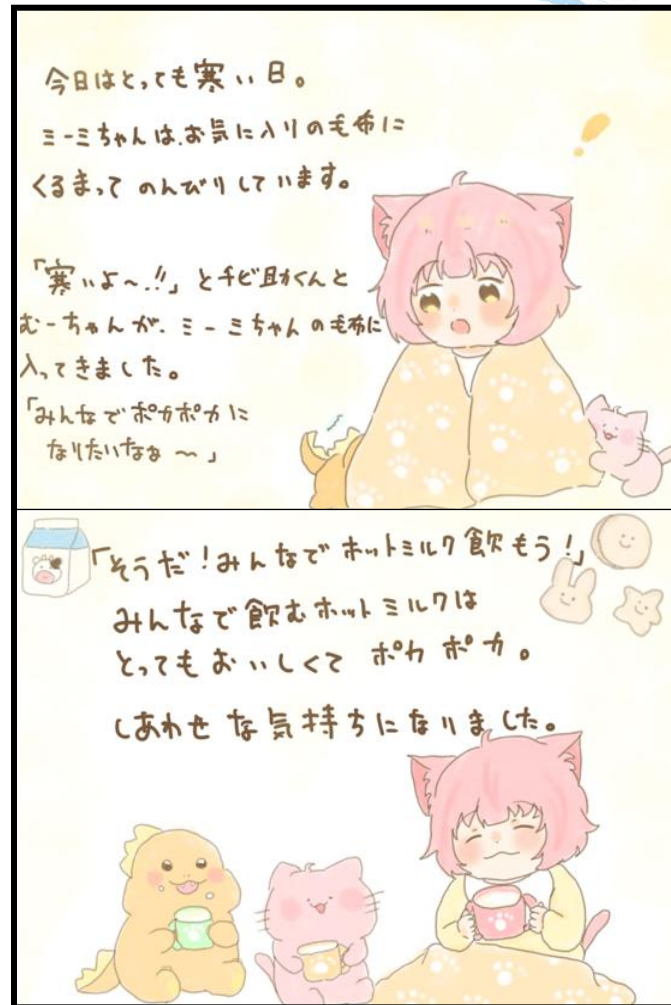 今日はとっても寒い日。
ミーミちゃんは、お気に入りの毛布に
くるまって のんびりしています。
「寒いよ〜!!」とチビ助くんと
むーちゃんが、ミーミちゃんの毛布に
入ってきました。
「みんなでポカポカに
なりたいなぁ〜」
「そうだ!みんなでホットミルク飲もう!」
みんなで飲むホットミルクは
とってもおいしくて ポカポカ。
しあわせな気持ちになりました。